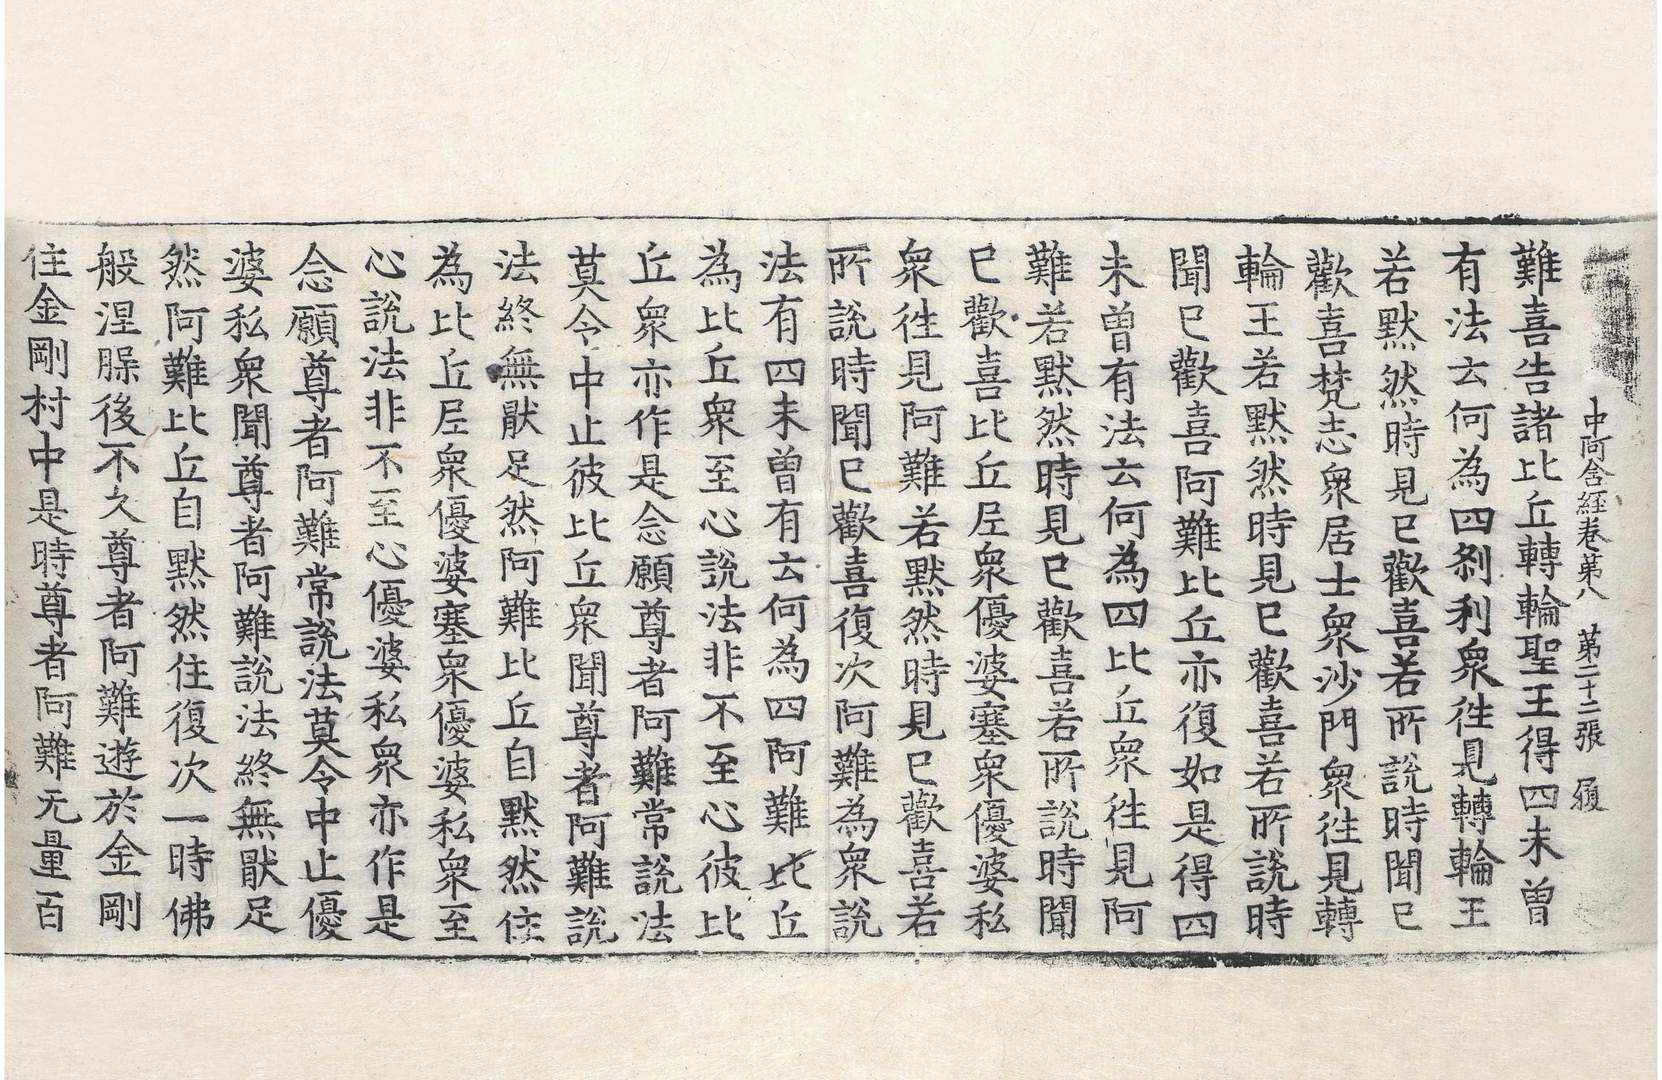 中阿含經卷第八　第二十二張　履
難喜告諸比丘轉輪聖王得四未曾
有法云何為四剎利衆徃見轉輪王
若默然時見已歡喜若所說時聞已
歡喜梵志衆居士衆沙門衆徃見轉
輪王若默然時見已歡喜若所說時
聞已歡喜阿難比丘亦復如是得四
未曾有法云何為四比丘衆徃見阿
難若默然時見已歡喜若所說時聞
已歡喜比丘尼衆優婆塞衆優婆私
衆徃見阿難若默然時見已歡喜若
所說時聞已歡喜復次阿難為衆說
法有四未曾有云何為四阿難比丘
為比丘衆至心說法非不至心彼比
丘衆亦作是念願尊者阿難常說法
莫令中止彼比丘衆聞尊者阿難說
法終無猒足然阿難比丘自默然住
為比丘尼衆優婆塞衆優婆私衆至
心說法非不至心優婆私衆亦作是
念願尊者阿難常說法莫令中止優
婆私衆聞尊者阿難說法終無猒足
然阿難比丘自默然住復次一時佛
般涅槃後不久尊者阿難遊於金剛
住金剛村中是時尊者阿難无量百